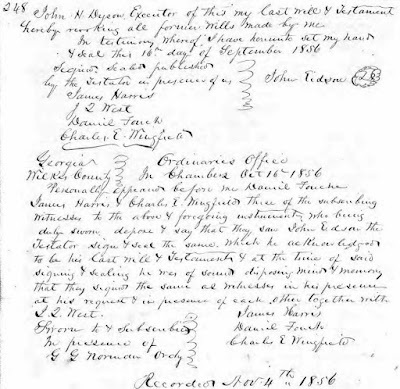 248 John H. Dyson Executor of this my Last Will & Testament
hereby revoking all former Wills made by me
In testimony whereof I have hereunto set my hand
& seal this 16th day of September 1856
Signed Sealed published
by the Testator in presence of us John Eidson
James Harris
J Q West
Daniel Fouch
Charles E. Wingfield
Georgia Ordinaries Office
Wilkes County In Chambers Oct 16th 1856
Personally appeared before me Daniel Fouche
James Harris & Charles E. Wingfield three of the subscribing
Witnesses to the above & foregoing instrument, who being
duly sworn, depose & say that they saw John Eidson the
Testator sign & seal the same, which he acknowledged
to be his Last Will & Testament & at the time of said
signing & sealing he was of sound disposing mind & memory
that they signed the same as witnesses in his presence
at his request & in presence of each other together with
J. Q. West. James Harris
Sworn to & Subscribed Daniel Fouch
In presence of Charles E Wingfield
G G Norman Ordy
Recorded Nov. 4th 1856